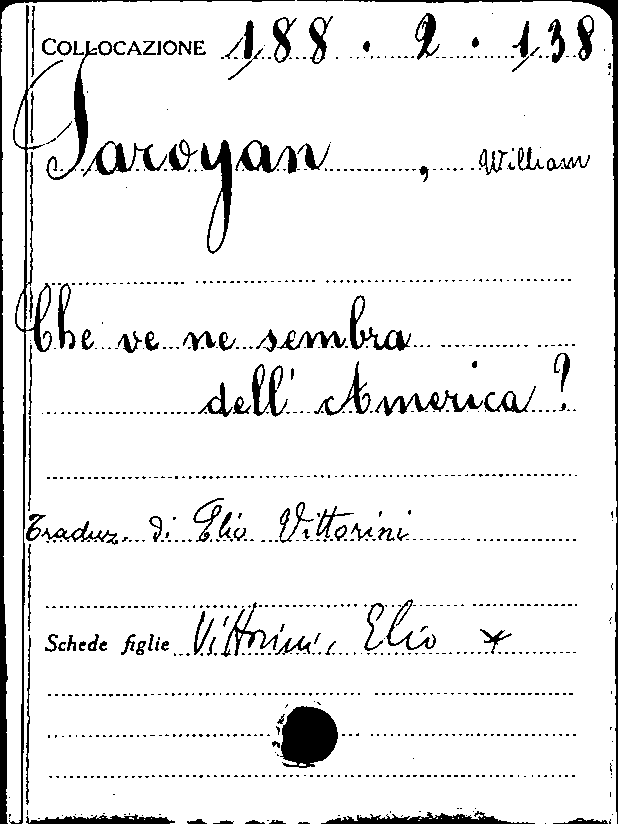 COLLOCAZIONE 188 . 2 . 138
Saroyan , William
Che ve ne sembra
dell' America?
Traduz. di Elio Vittorini
Schede figlie Vittorini, Elio *